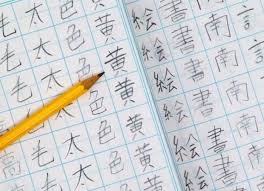 南南南南南
書書書書書書
絵絵絵絵絵絵
黄黄黄黄黄
色色色色色
太太太太
毛毛毛毛